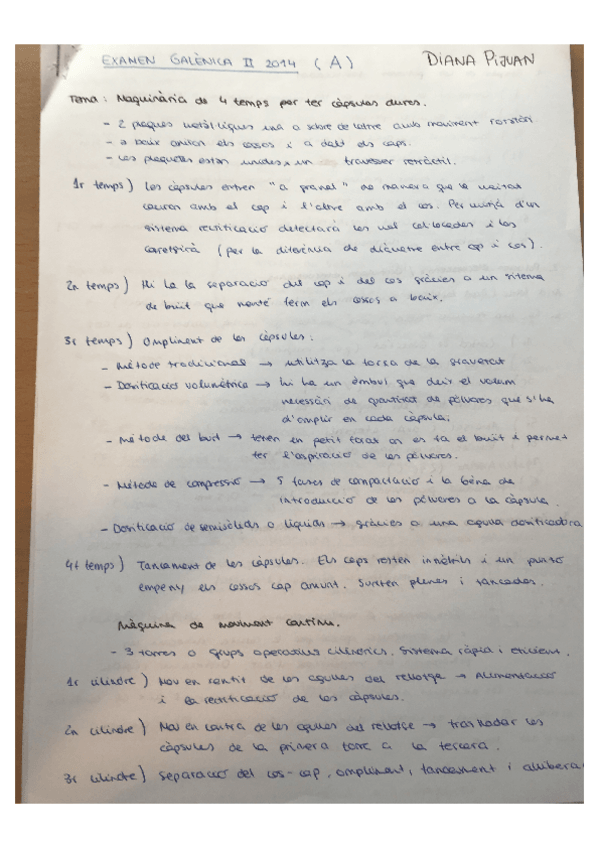 EXAMEN GALÈNICA II 2014 (A) DIANA PIJUAN
Tema: Maquinària de 4 temps per fer càpsules dures.
- 2 plaques metàl·liques una a sobre de l'altre amb moviment rotatori
- a baix aniran els cossos i a dalt els caps.
- Les plaquetes estan unides x un travesser retràctil.
1r temps) Les càpsules entren "a granel" de manera que la meitat
cauran amb el cap i l'altre amb el cos. Per mitjà d'un
sistema rectificació detectarà les mal col·locades i les
corregirà (per la diferència de diàmetre entre cap i cos).
2n temps) Hi ha la separació del cap i del cos gràcies a un sistema
de buit que manté ferm els cossos a baix.
3r temps) Ompliment de les càpsules:
- Mètode tradicional → utilitza la força de la gravetat
- Dosificació volumètrica → hi ha un èmbul que diu el volum
necessàri de quantitat de pólvores que s'ha
d'omplir en cada càpsula;
- Mètode del buit → tenen un petit forat on es fa el buit i permet
fer l'aspiració de les pólvores.
- Mètode de compressió → 5 fases de compactació i la 6ena de
introducció de les pólvores a la càpsula.
- Dosificació de semisòlids o líquids → gràcies a una agulla dosificadora
4t temps) Tancament de les càpsules. Els caps resten immòbils i un punxó
empeny els cossos cap amunt. Surten plenes i tancades.
Màquina de moviment continu.
- 3 torres o grups operatius cilíndrics. Sistema ràpid i eficient.
1r cilindre) Mov en sentit de les agulles del rellotge → Alimentació
i la rectificació de les càpsules.
2n cilindre) Mov en contra de les agulles del rellotge → traslladar les
càpsules de la primera torre a la tercera.
3r cilindre) Separació del cos-cap, ompliment, tancament i allibera